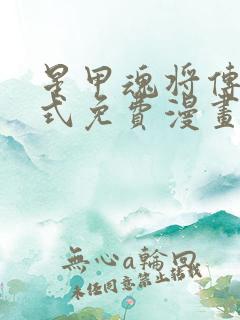 星甲魂将傳
式免費漫畫
無心a輪回
未經同意禁止轉載